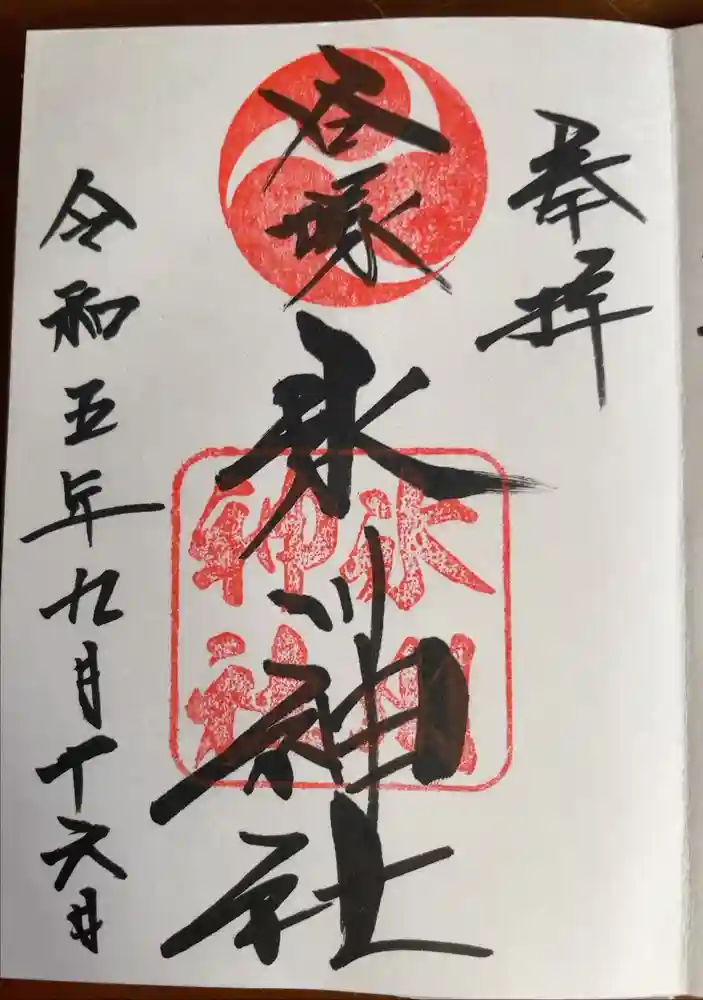 奉拝
谷塚
氷川神社
氷川
神社
令和五年九月十六日